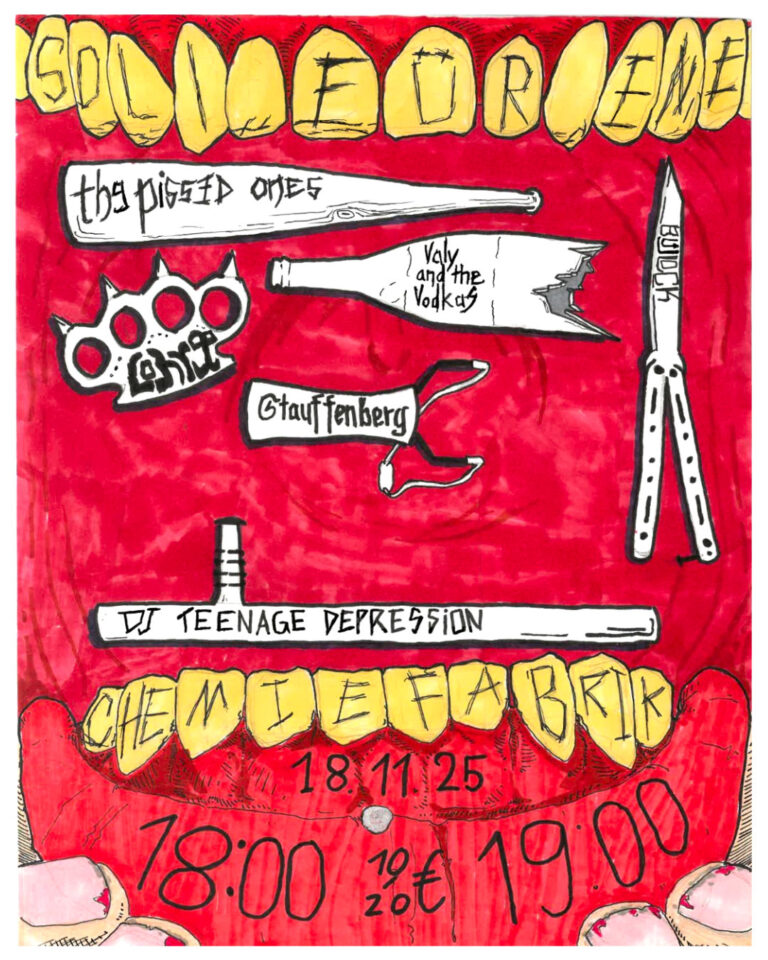 SOLI FÖR ENE
thg pissed ones
Valy
and the
Vodkas
BUIOCK
Stauffenberg
DJ TEENAGE DEPRESSION
CHEMIEFABRIK
18.11.25
18:00 10/20€ 19:00